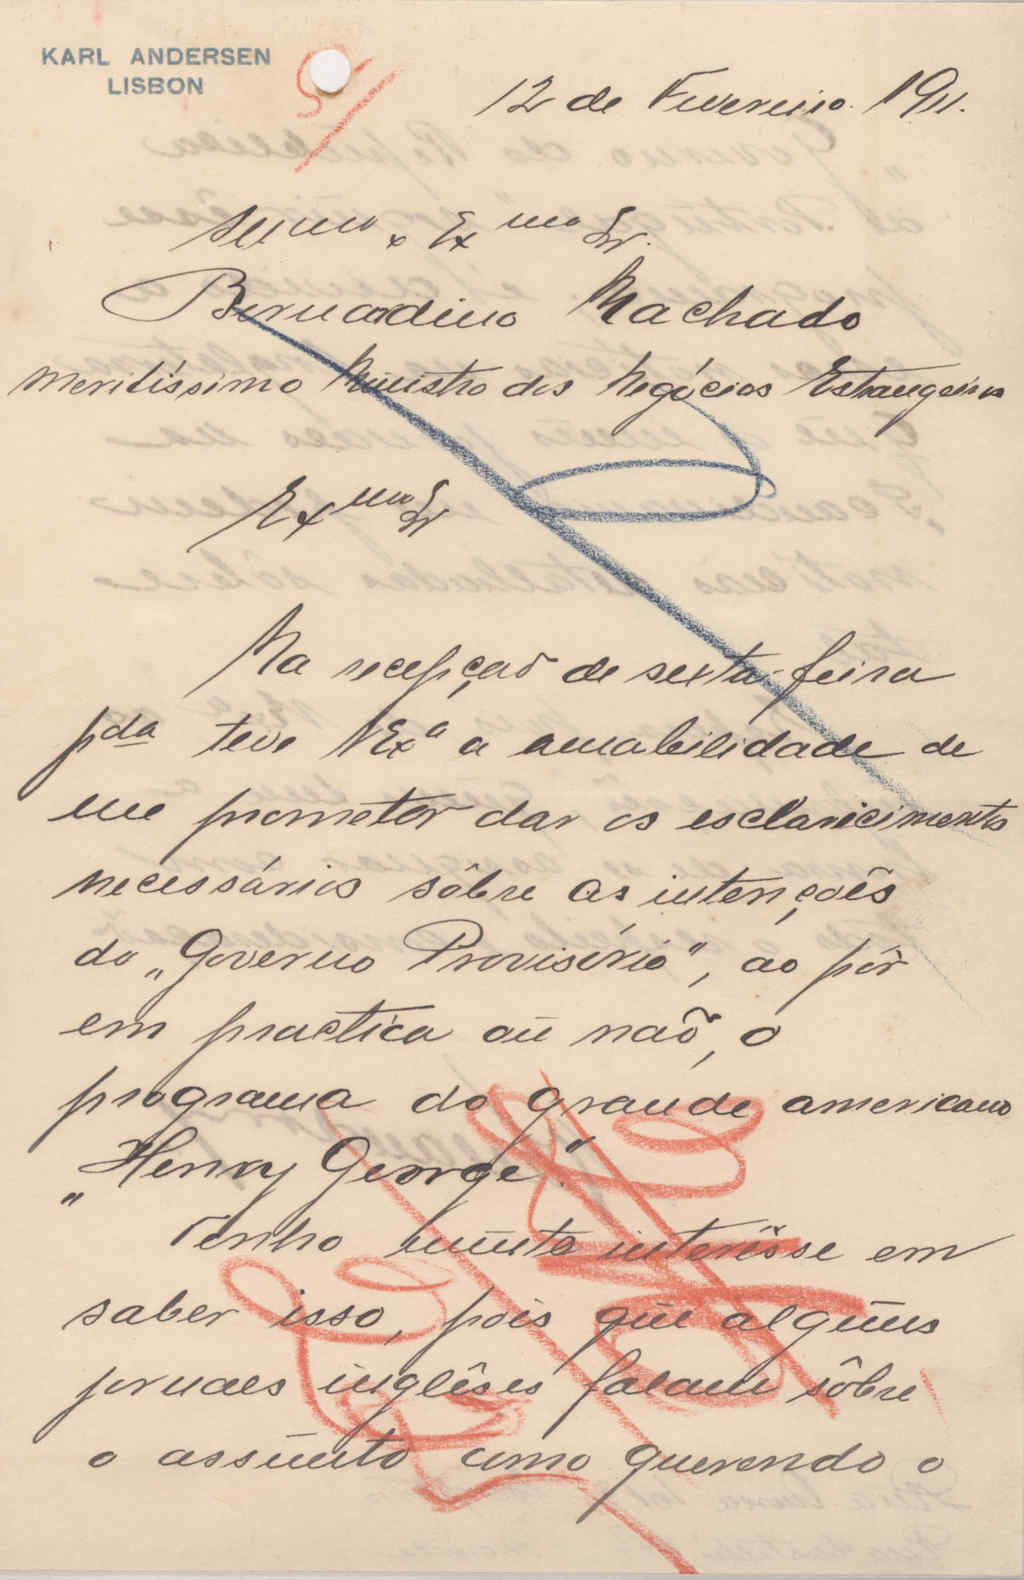 KARL ANDERSEN
LISBON
12 de Fevereiro. 1911.
Illmo. e Exmo Sr.
Bernardino Machado
Meritíssimo Ministro dos Negócios Estrangeiros
Exmo Sr
Na recepção de sexta-feira
pda teve V Exa a amabilidade de
me prometer dar os esclaricimentos
necessários sôbre as intenções
do „Governo Provisório", ao pôr
em practica ou não, o
programa do grande americano
„Henry George".
Tenho muito interêsse em
saber isso, pois que alguns
jornaes inglêses falam sôbre
o assunto como querendo o